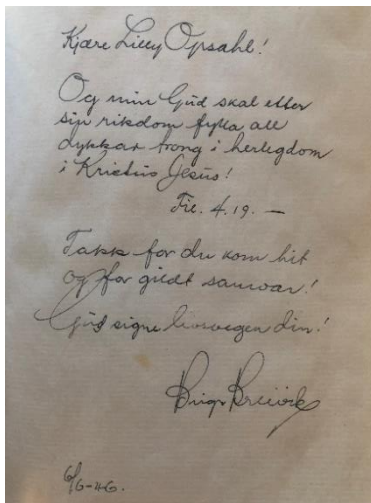 Kjære Lilly Opsahl!
Og min Gud skal etter
sin rikdom fylla all
dykkar trong i herlegdom
i Kristus Jesus!
Fil. 4.19. —
Takk for du kom hit
og for gildt samvær!
Gud signe livsvegen din!
6/6-46.